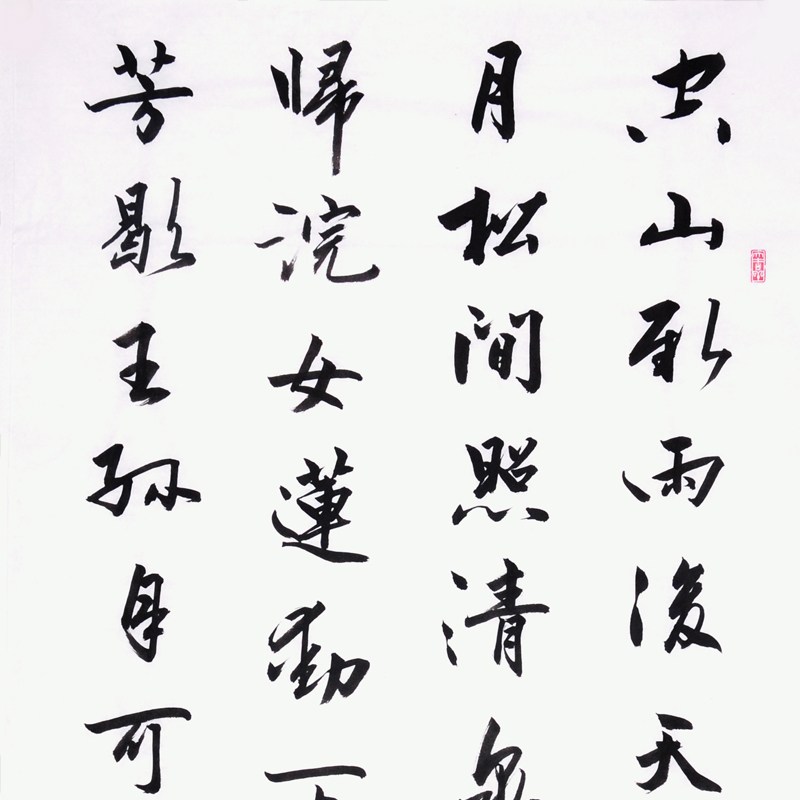 空山新雨後天
月松間照清泉
歸浣女蓮動下
芳歇王孫自可